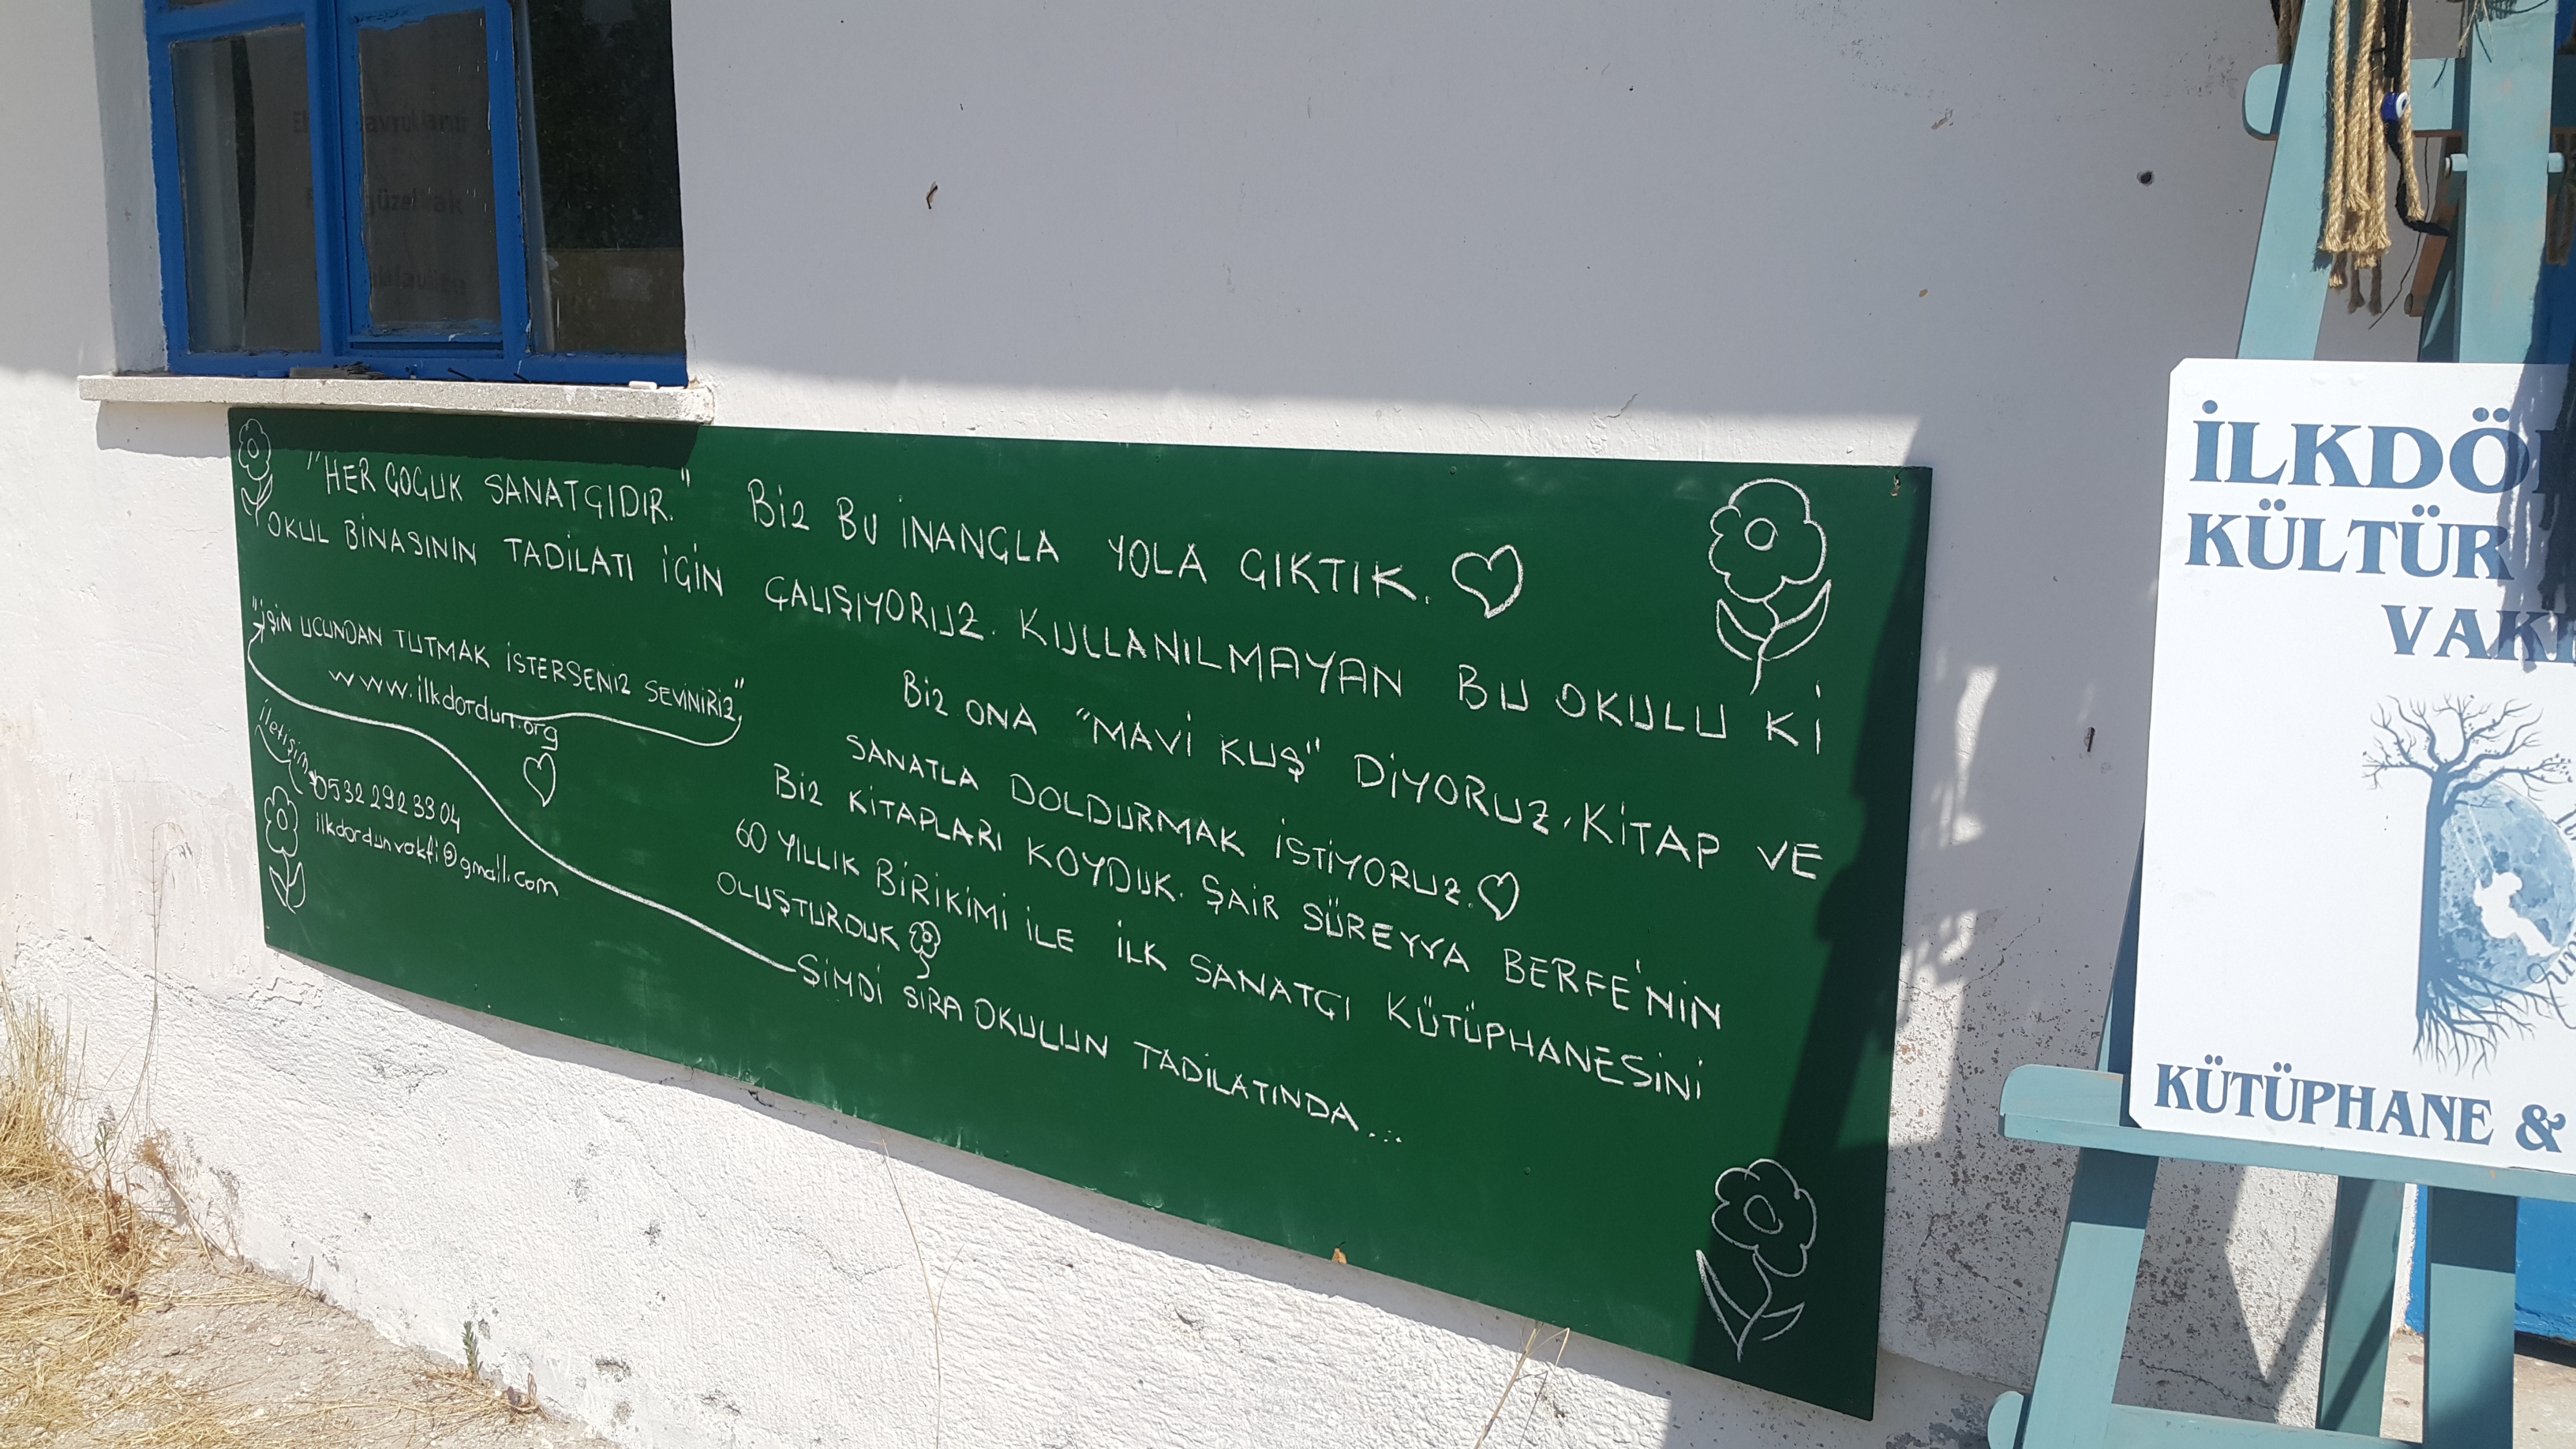 "HER ÇOCUK SANATÇIDIR." BİZ BU İNANÇLA YOLA ÇIKTIK.
OKUL BİNASININ TADİLATI İÇİN ÇALIŞIYORUZ. KULLANILMAYAN BU OKULU Kİ
BİZ ONA "MAVİ KUŞ" DİYORUZ, KİTAP VE
SANATLA DOLDURMAK İSTİYORUZ.
BİZ KİTAPLARI KOYDUK. ŞAİR SÜREYYA BERFE'NİN
60 YILLIK BİRİKİMİ İLE İLK SANATÇI KÜTÜPHANESİNİ
OLUŞTURDUK
ŞİMDİ SIRA OKULUN TADİLATINDA...
"İŞİN UCUNDAN TUTMAK İSTERSENİZ SEVİNİRİZ"
www.ilkdordun.org
iletişim
0532 292 33 04
ilkdordunvakfi@gmail.com
İLKDÖ
KÜLTÜR
VAK
KÜTÜPHANE &